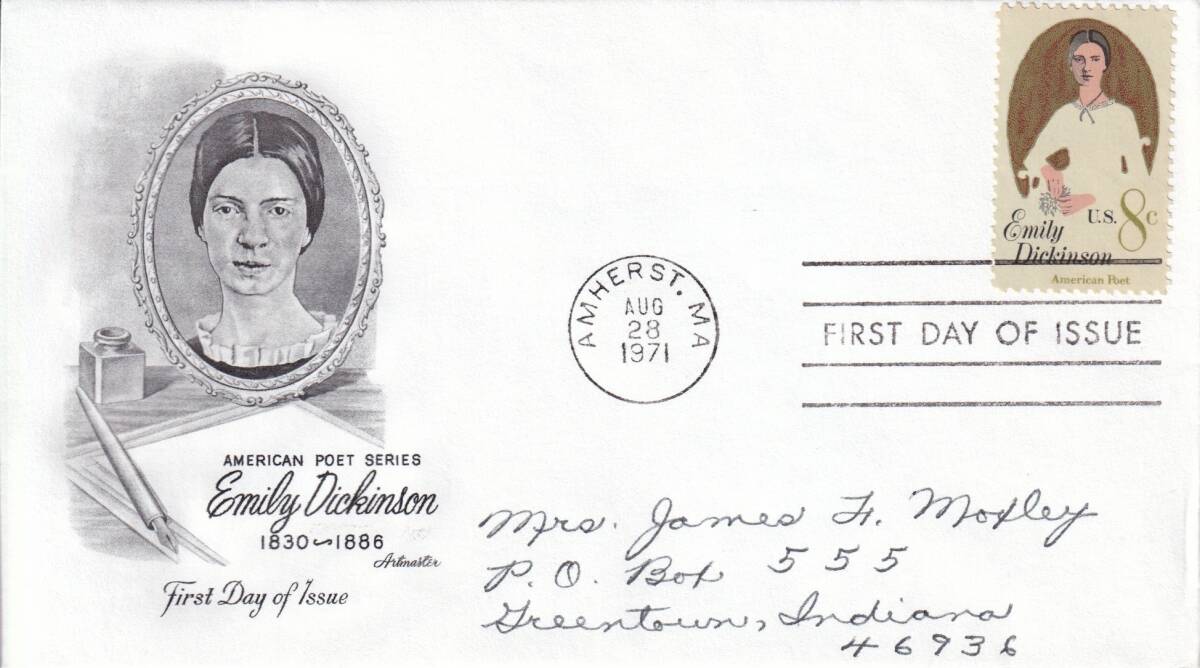 U.S. 8c
Emily
Dickinson
American Poet
AMHERST, MA
AUG
28
1971
FIRST DAY OF ISSUE
AMERICAN POET SERIES
Emily Dickinson
1830~1886
Artmaster
First Day of Issue
Mrs. James F. Moxley
P.O. Box 555
Greentown, Indiana
46936